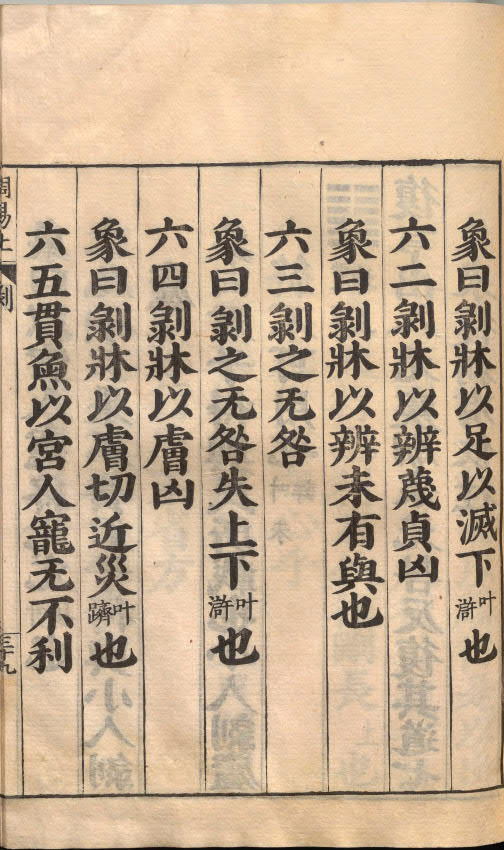 象曰剝牀以足以滅下叶滸也
六二剝牀以辨蔑貞凶
象曰剝牀以辨未有與也
六三剝之无咎
象曰剝之无咎失上下叶滸也
六四剝牀以膚凶
象曰剝牀以膚切近災叶躋也
六五貫魚以宮人寵无不利
周易上 剝 三十九